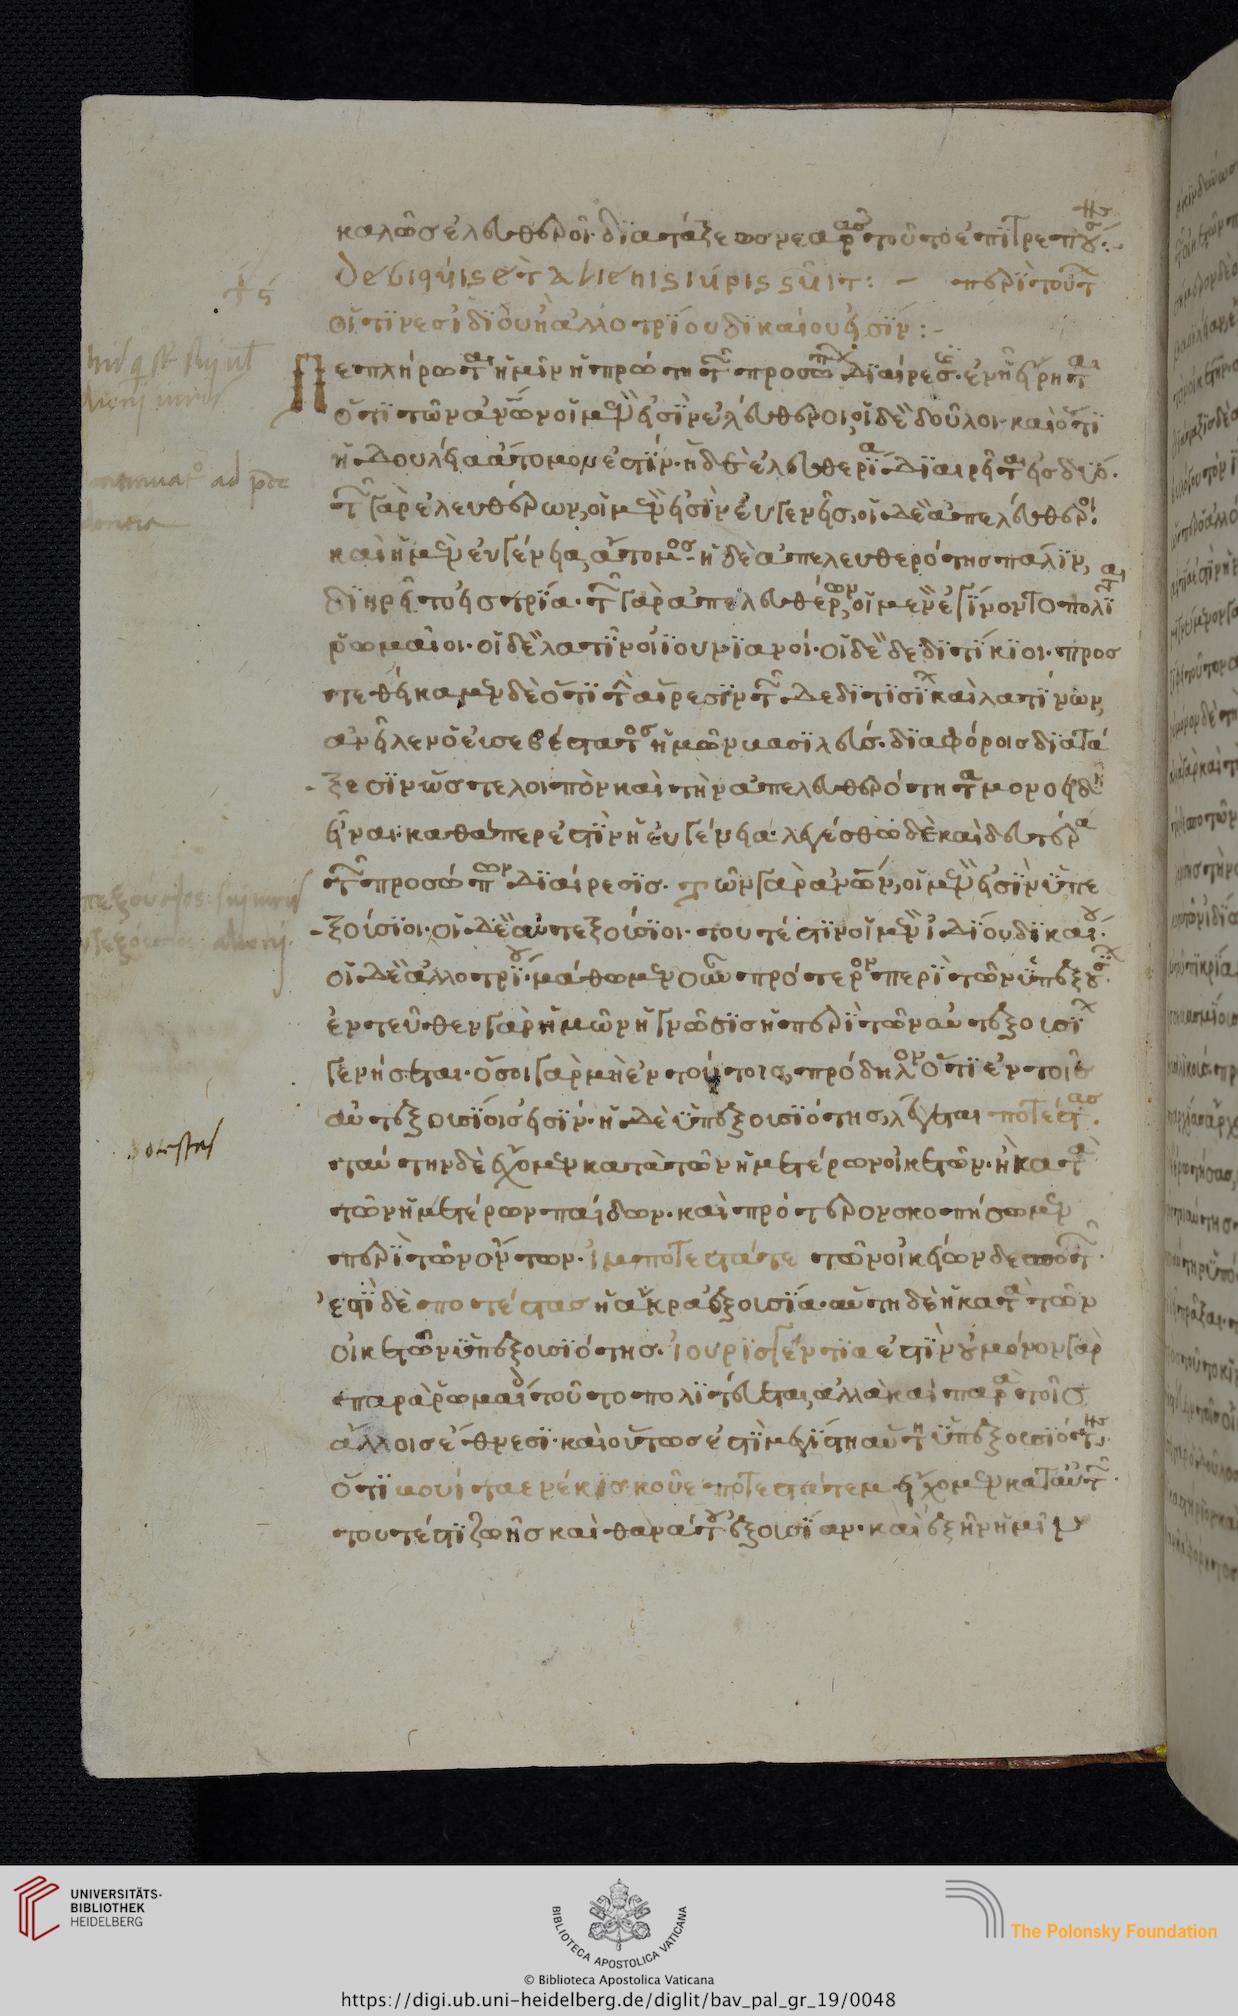 καλῶς ἐλευθεροῖ. διατάξεως νεαρᾶς τοῦτο ἐπιτρεπούσης:
De his qui sui et alieni iuris sunt: – περὶ τούτων
οἵτινες ἰδίου ἢ ἀλλοτρίου δικαίου εἰσίν:-
Πεπλήρωται ἡμῖν ἡ πρώτη τῶν προσώπων διαίρεσις. ἐν ᾗ εἴρηται
ὅτι τῶν ἀνθρώπων οἱ μὲν εἰσὶν ἐλεύθεροι, οἱ δὲ δοῦλοι. καὶ ὅτι
ἡ δουλεία ἄτομος ἐστίν. ἡ δὲ ἐλευθερία διαιρεῖται εἰς δύο.
τῶν γὰρ ἐλευθέρων, οἱ μὲν εἰσὶν εὐγενεῖς, οἱ δὲ ἀπελεύθεροι
καὶ ἡ μὲν εὐγένεια, ἄτομος. ἡ δὲ ἀπελευθερότης πάλιν,
διῃρεῖτο εἰς τρία. τῶν γὰρ ἀπελευθέρων, οἱ μὲν ἐγίνοντο πολῖται
ῥωμαῖοι. οἱ δὲ λατῖνοι ἰουνιανοί. οἱ δὲ δεδιτίκιοι. προσ
τεθείκαμεν δὲ ὅτι τὴν αἵρεσιν τῶν δεδιτισίων καὶ λατίνων,
ἀνεῖλεν ὁ εὐσεβέστατος ἡμῶν βασιλεύς. διαφόροις διατά
ξεσιν ὥστε λοιπὸν καὶ τὴν ἀπελευθερότητα μονοειδῆ
εἶναι. καθάπερ ἐστὶν ἡ εὐγένεια. λεγέσθω δὲ καὶ δευτέρα
τῶν προσώπων διαίρεσις. τῶν γὰρ ἀνθρώπων, οἱ μὲν εἰσὶν ὑπε
ξούσιοι. οἱ δὲ αὐτεξούσιοι. τουτέστιν οἱ μὲν ἰδίου δικαίου.
οἱ δὲ ἀλλοτρίου. μάθωμεν οὖν πρότερον περὶ τῶν ὑπεξουσίων
ἐντεῦθεν γὰρ ἡμῶν ἡ γνῶσις ἡ περὶ τῶν αὐτεξουσίων
γενήσεται. ὅσοι γὰρ μὴ ἐν τούτοις, πρόδηλον ὅτι ἐν τοῖς
αὐτεξουσίοις εἰσίν. ἡ δὲ ὑπεξουσιότης, λέγεται ποτέστας.
ταύτην δὲ ἔχομεν κατὰ τῶν ἡμετέρων οἰκετῶν. ἢ κατὰ
τῶν ἡμετέρων παίδων. καὶ πρότερον σκοπήσωμεν
περὶ τῶν ὄντων. ἰμποτεστάτε τῶν οἰκείων δεσποτῶν.
ἐστὶ δὲ ποτέστας ἡ ἄκρα ἐξουσία. αὕτη δὲ ἡ κατὰ τῶν
οἰκετῶν ὑπεξουσιότης. ἰουρισγέντια ἐστὶν οὐ μόνον γὰρ
παρὰ ῥωμαίοις τοῦτο πολιτεύεται, ἀλλὰ καὶ παρὰ τοῖς
ἄλλοις ἔθνεσι. καὶ οὕτως ἐστὶ μεγίστη αὕτη ἡ ὑπεξουσιότης,
ὅτι βουίταε νέκισκουε ποτεστάτεμ εἴχομεν κατ' αὐτῶν.
τουτέστι ζωῆς καὶ θανάτου ἐξουσίαν. καὶ ἐξῆν ἡμῖν
potestas
UNIVERSITÄTS-
BIBLIOTHEK
HEIDELBERG
BIBLIOTECA APOSTOLICA VATICANA
The Polonsky Foundation
© Biblioteca Apostolica Vaticana
https://digi.ub.uni-heidelberg.de/diglit/bav_pal_gr_19/0048